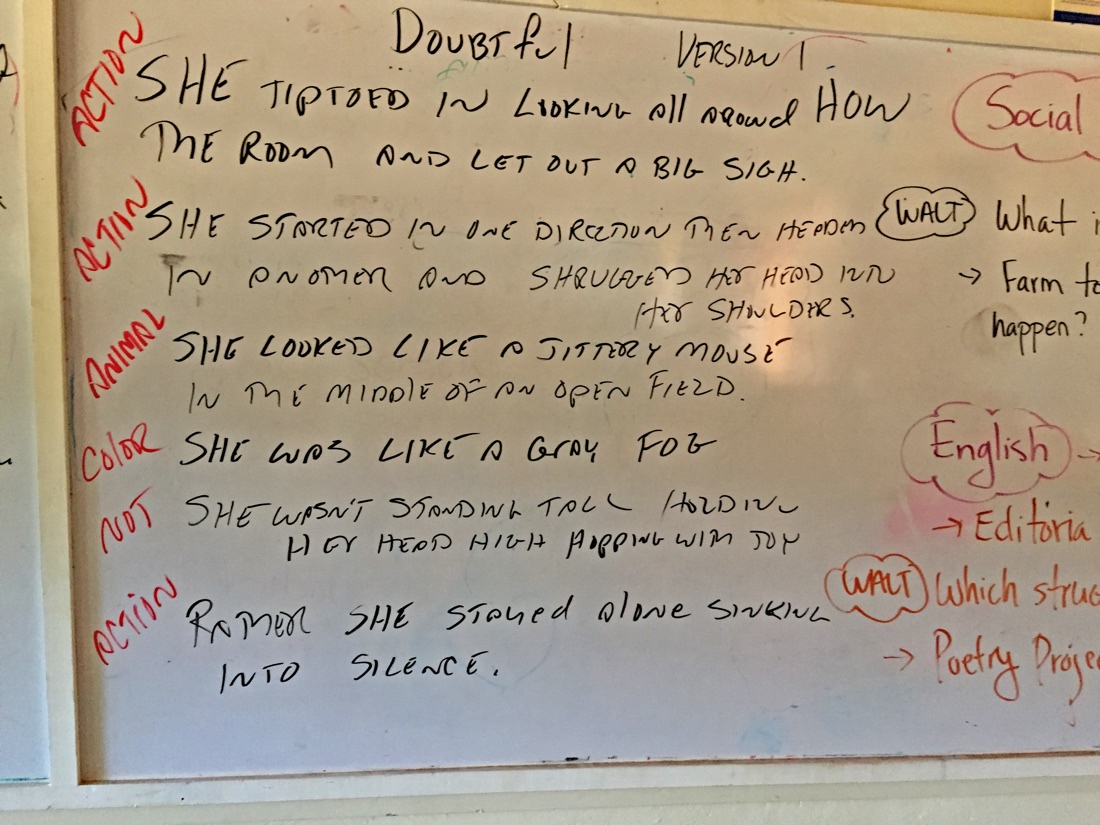 DOUBTful VERSION 1
ACTION
SHE TIPTOED IN LOOKING All around HOW
THE ROOM AND LET OUT A BIG SIGH.
ACTION
SHE STARTED IN ONE DIRECTION THEN HEADED
IN ANOTHER AND SHRUGGED HER HEAD INTO
HER SHOULDERS.
ANIMAL
SHE LOOKED LIKE A JITTERY MOUSE
IN THE MIDDLE OF AN OPEN FIELD.
COLOR
SHE WAS LIKE A GRAY FOG
NOT
SHE WASN'T STANDING TALL HOLDING
HER HEAD HIGH HOPPING WITH JOY
ACTION
RATHER SHE STAYED alone SINKING
INTO SILENCE.
Social
WALT What i
→ Farm to
happen?
English →
→ Editoria
WALT Which struc
→ Poetry Projec